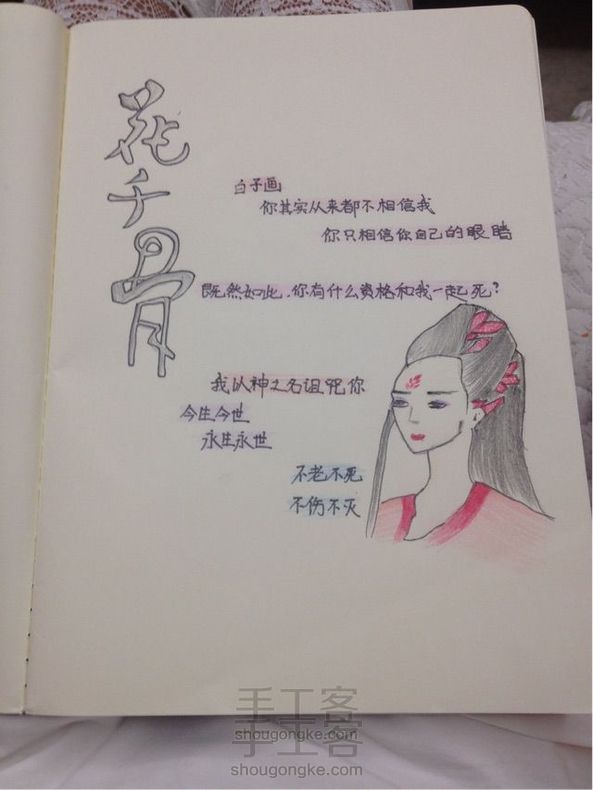 花千骨
白子画
你其实从来都不相信我
你只相信你自己的眼睛
既然如此.你有什么资格和我一起死?
我以神之名诅咒你
今生今世
永生永世
不老不死
不伤不灭
手工客
shougongke.com
手工客
shougongke.com